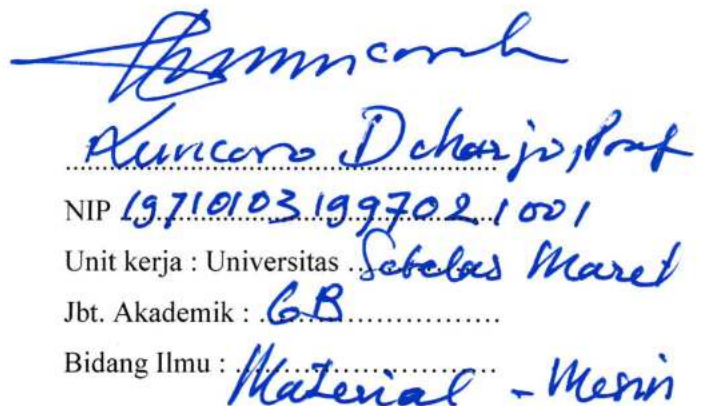 Kuncoro Diharjo, Prof
NIP 197101031997021001
Unit kerja : Universitas Sebelas Maret
Jbt. Akademik : GB
Bidang Ilmu : Material - Mesin